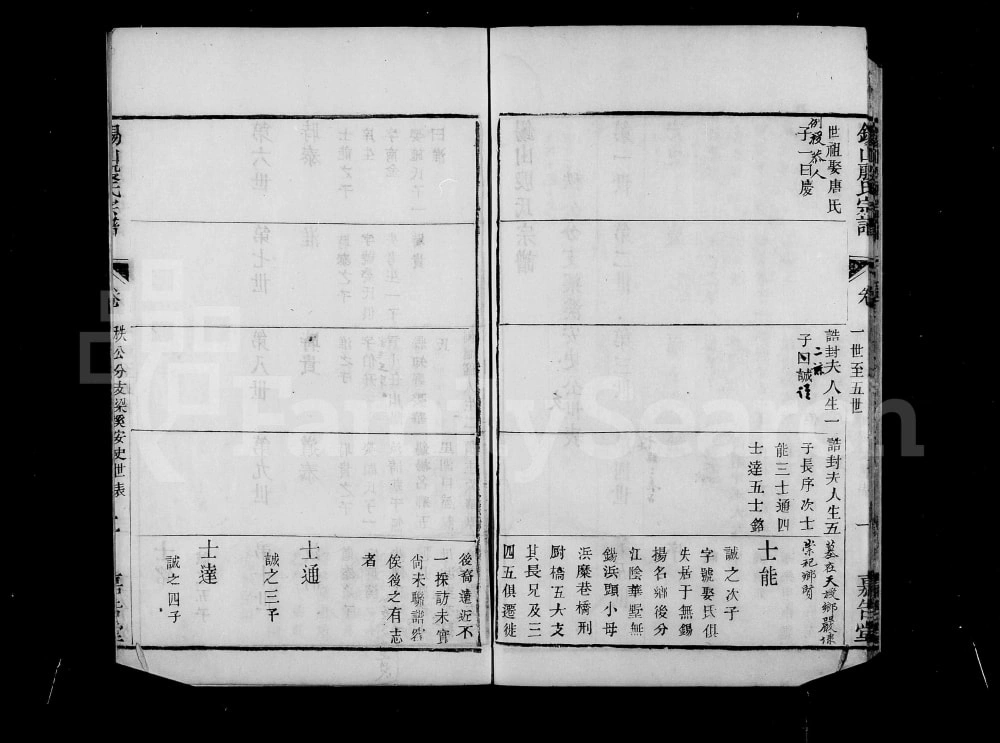 錫山殷氏宗譜
卷
一世至五世
一
嘉告堂
世祖娶唐氏
例授恭人
子一曰慶
誥封夫人生一
二
子曰誠
誥封夫人生五
子長序次士
能三士通四
士達五士銘
墓在天授鄉嚴埭
崇祀鄉賢
士能
誠之次子
字號娶氏俱
失居于無錫
揚名鄉後分
江陰華墅無
錫浜頭小毋
浜糜巷橋刑
厨橋五大支
其長兄及三
四五俱遷徙
後裔遠近不
一採訪未實
尚未聯譜容
俟後之有志
者
士通
誠之三子
士達
誠之四子
錫山殷氏宗譜
卷
秩公分支梁溪安史世表
二
嘉告堂
FamilySearch